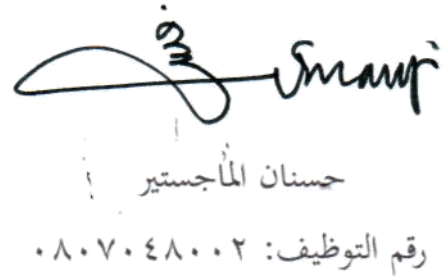 حسنان الماجستير
رقم التوظيف: ٠٨٠٧٠٤٨٠٠٢